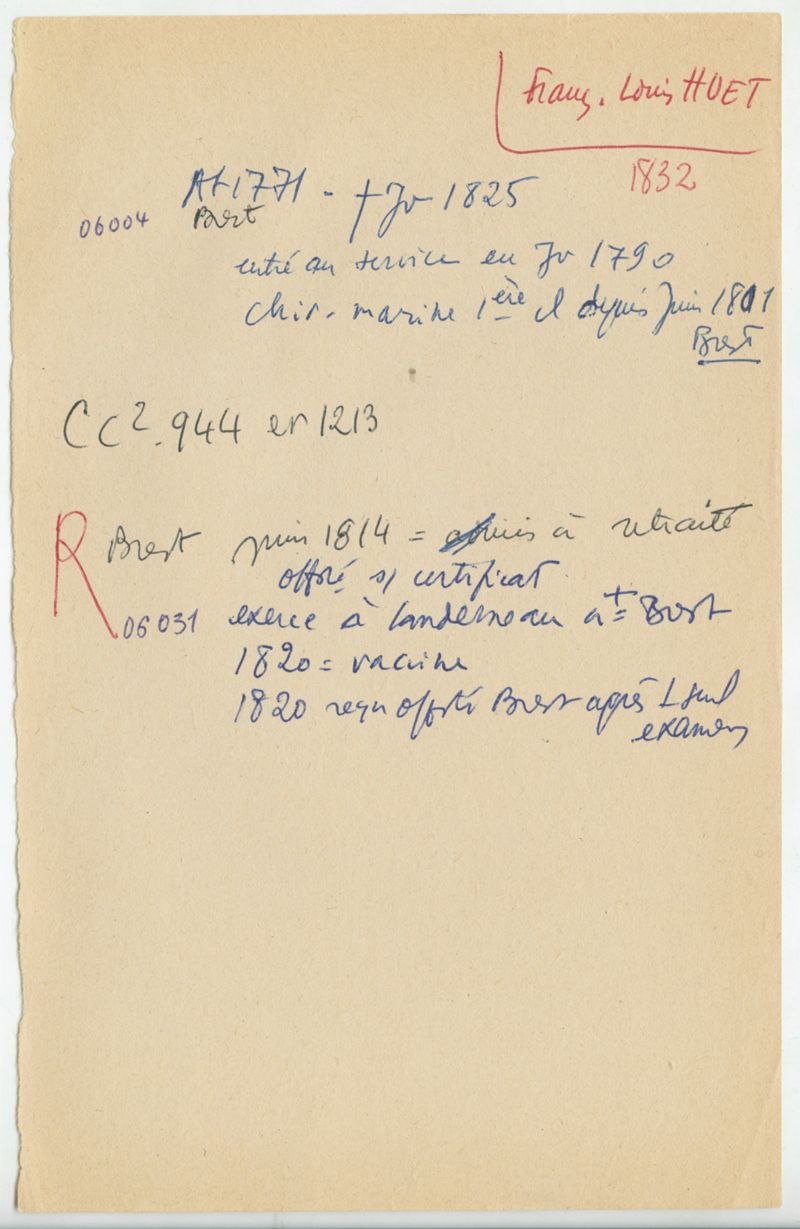 Franç. Louis HUET
1832
At 1771 - † Jv 1825
06004 Brest
entré au service en Jv 1790
chir. marine 1ère cl depuis Juin 1801
Brest
CC2. 944 et 1213
R Brest juin 1814 = admis à retraite
offsté s/ certificat
06031 exerce à Landerneau a+ = Brest
1820 = vaccine
1820 reçu offsté Brest après 1 seul
examen